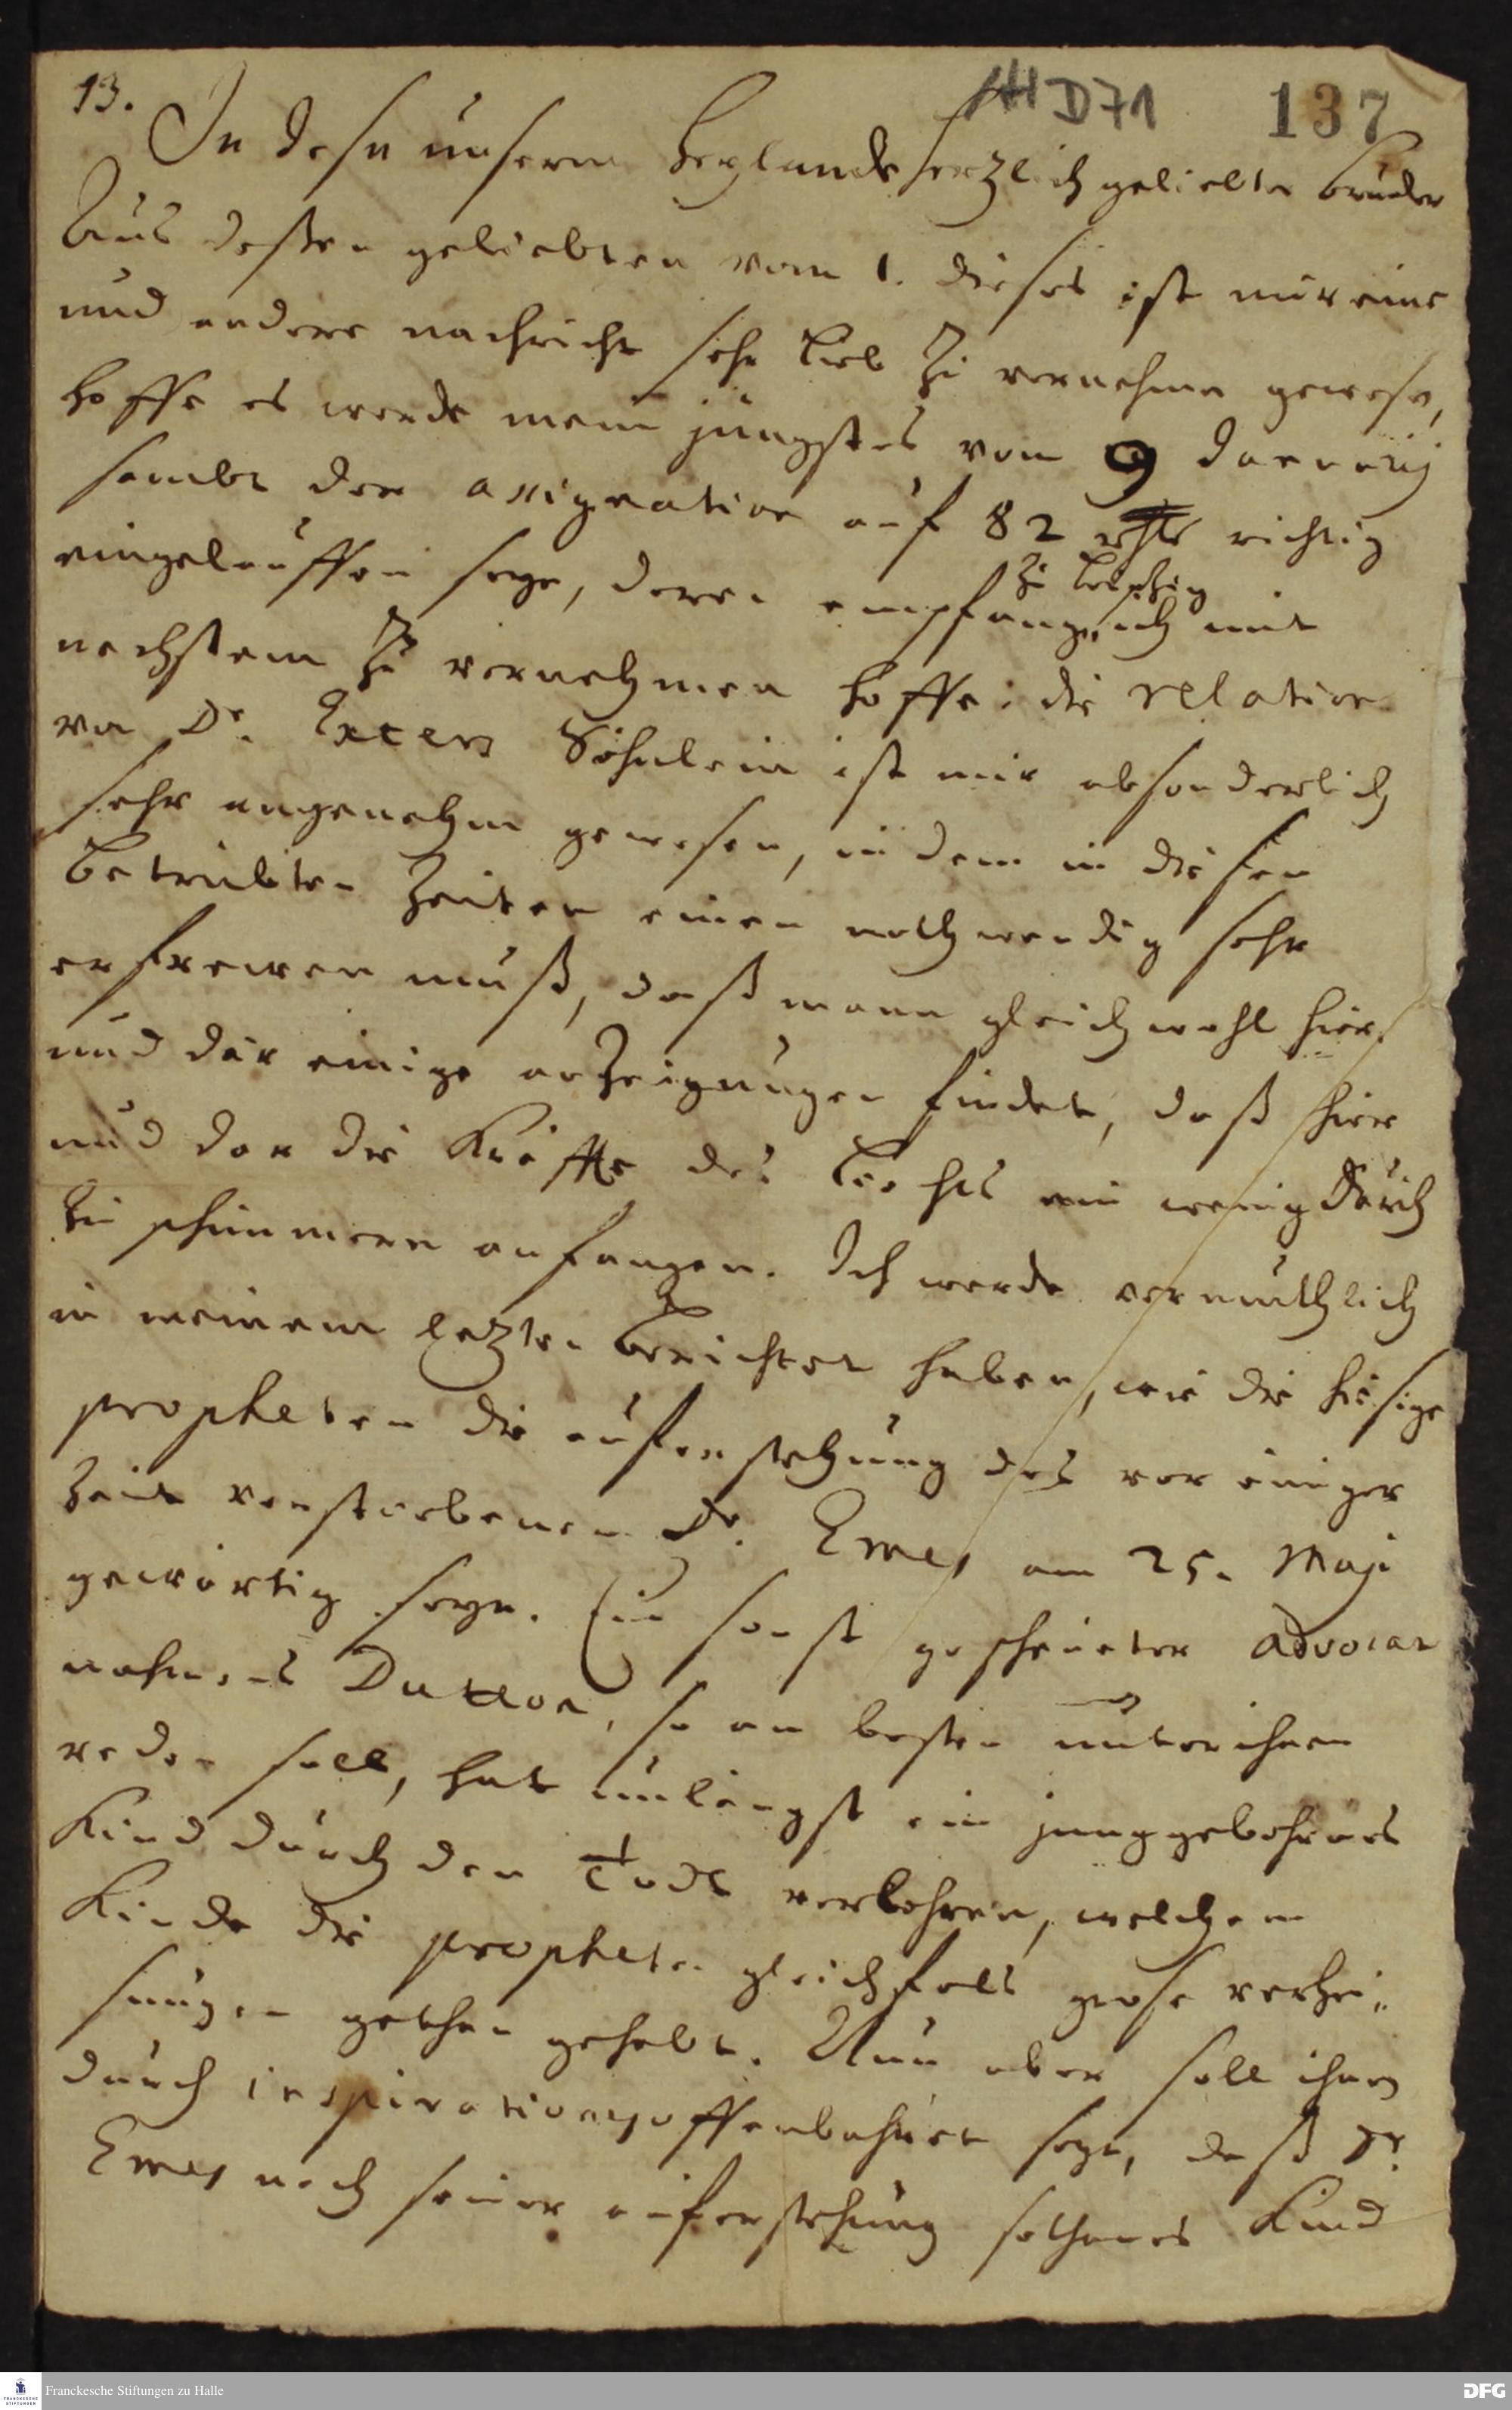 13.
AH D71
137
In desn unserm Heylande hertzlich geliebter bruder
Aus dessen geliebten vom 1. dieses ist mir eine
und andere nachricht sehr lieb zu vernehmen gewesen,
hoffe es werde mein jüngstes vom 9
sambt der assignation auf 82 rthlr richtig
eingelauffen seyn, deren empfang ich mit
zu Leipzig
nechstem zu vernehmen hoffe: die relation
von Dr. Exters Söhnlein ist mir absonderlich
sehr angenehm gewesen, in dem in diesen
betrübten Zeiten einen nothwendig sehr
erfrewen muß, daß mann gleichwohl hier
und dar einige anzeigungen findet, daß hier
und dar die Kräffte des Liechts ein wenig durch
zu schimmern anfangen. Ich werde vermuthlich
in meinem letzten berichtet haben, wie die hiesige
propheten die auferstehung des vor einiger
Zeit verstorbenen Dr. Emes am 25. Maji
gewärtig seyn. Ein sonst gescheuter advocat
nahmens Dutton, so am besten unter ihnen
reden soll, hat unlängst ein junggebohrnes
Kind durch den Todt verlohren, welchem
Kinde die propheten gleichfals grose verhei„
sungen gethan gehabt. Nun aber soll ihnen
durch inspirationes offenbahret seyn, daß Dr.
Emes nach seiner auferstehung solhanes Kind
Franckesche Stiftungen zu Halle
DFG